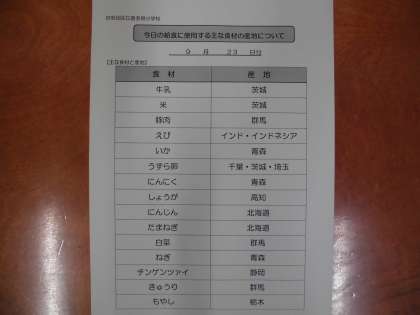 今日の給食に使用する主な食材の産地について
9 月 23 日分
【主な食材と産地】
食 材 産 地
牛乳 茨城
米 茨城
豚肉 群馬
えび インド・インドネシア
いか 青森
うずら卵 千葉・茨城・埼玉
にんにく 青森
しょうが 高知
にんじん 北海道
たまねぎ 北海道
白菜 群馬
ねぎ 青森
チンゲンツァイ 静岡
きゅうり 群馬
もやし 栃木